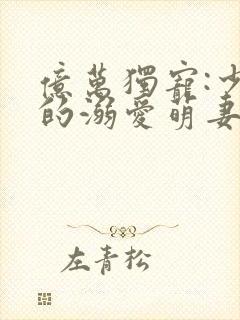 億萬獨寵:少
的溺愛萌妻
左青松